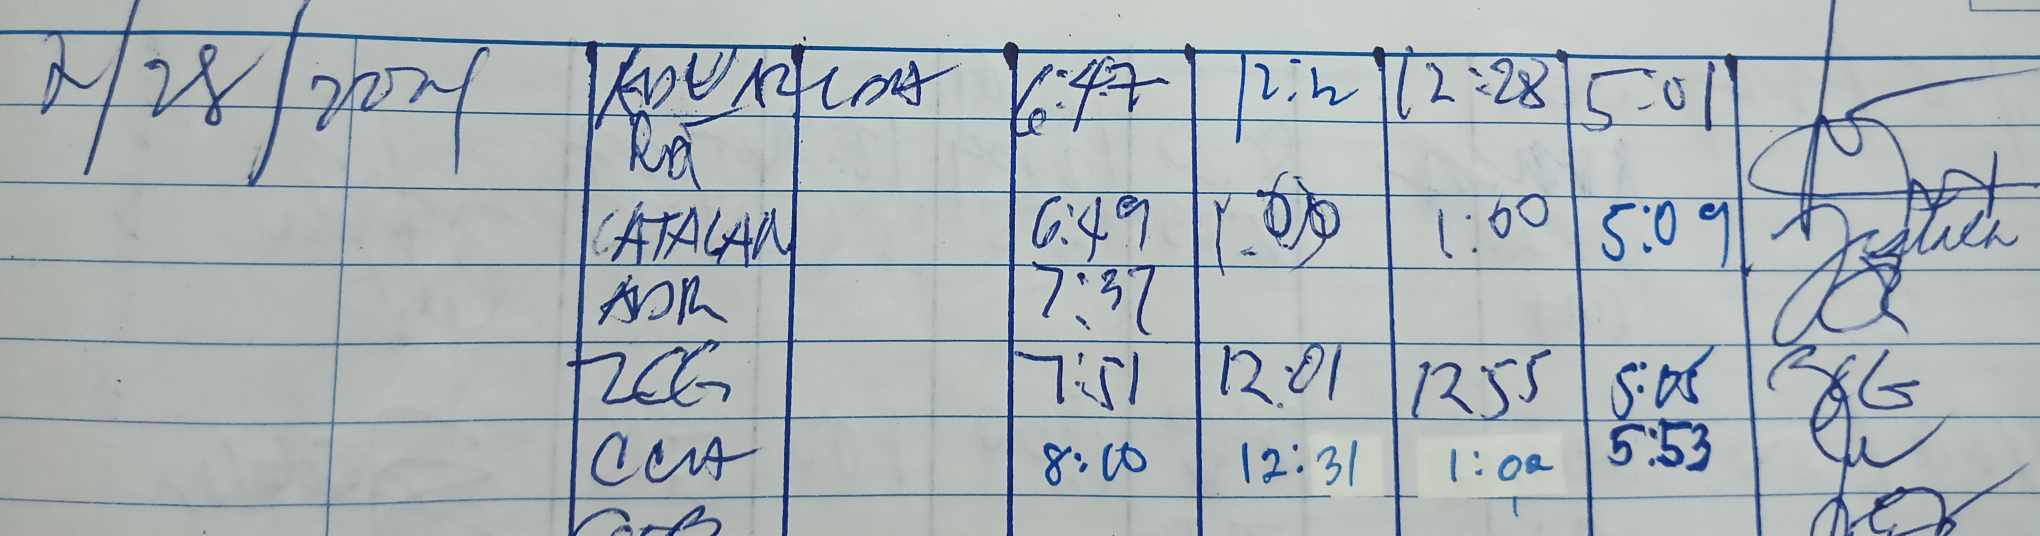 2/28/2024 6:47 12:12 12:28 5:01
CATALAN 6:49 1:00 1:00 5:09
ADR 7:37
ZCG 7:51 12:01 1255 5:05 ZCG
CCA 8:00 12:31 1:00 5:53